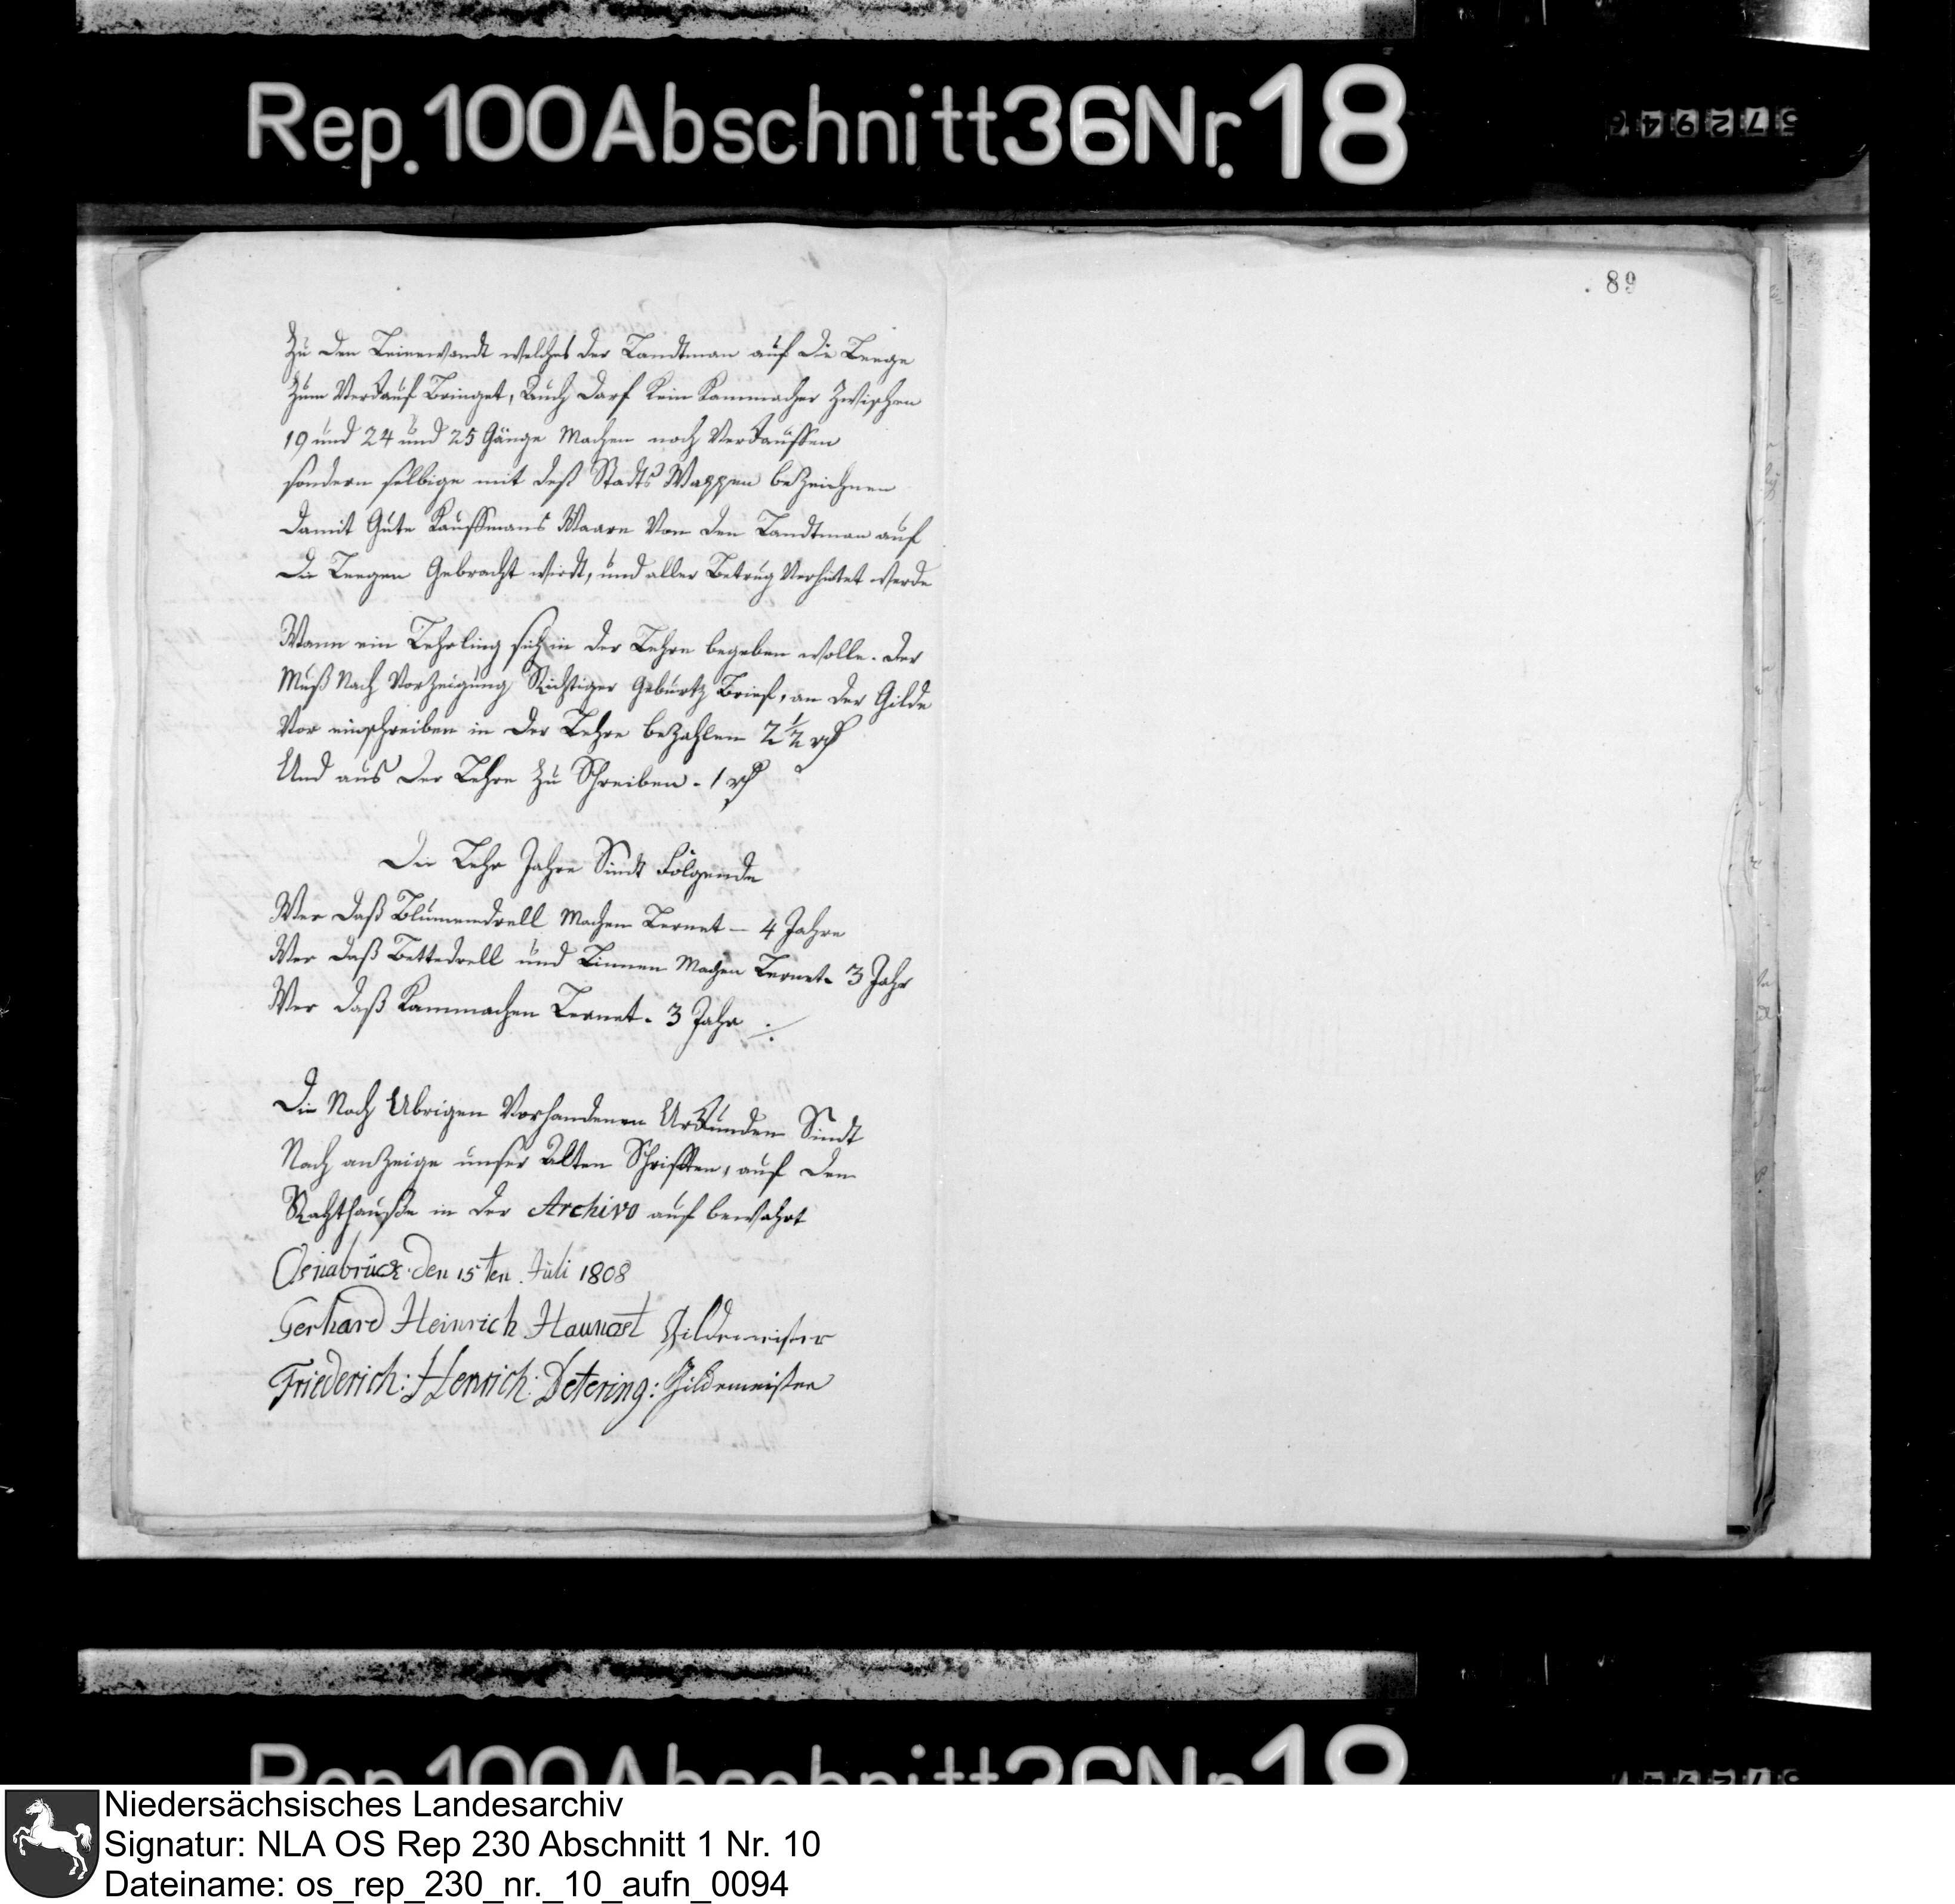 Rep. 100 Abschnitt 36 Nr. 18
89
Zu den Leinewandt welches der Landtman auf die Leege
Zum Verkauf Bringet, Auch darf Kein Kammacher Zwischen
19 und 24 und 25 Gänge Machen noch Verkauffen
sondern selbige mit deß Stadts Wappen beZeichnen
damit Gute Kauffmans Waare Von den Landtman auf
die Leegen Gebracht wirdt, und aller Betrug Verhütet werde
Wann ein Lehrling sich in der Lehre begeben wolle. der
Muß Nach VorZeigung Richtiger Geburtz Brief, an der Gilde
Vor einschreiben in der Lehre beZahlen 2 1/2 rth
Und aus der Lehre Zu Schreiben - 1 rth
Die Lehr Jahre Sindt Folgende
Wer daß Blumendrell Machen Lernet - 4 Jahre
Wer daß Bettedrell und Linnen Machen Lernet - 3 Jahr
Wer daß Kammachen Lernet - 3 Jahr ./.
Die Noch Übrigen Vorhandenen Urkunden Sindt
Nach anZeige unser Alten Schrifften, auf dem
Rahthauße in der Archivo auf bewahrt
Osnabrück den 15ten Juli 1808
Gerhard Heinrich Gildemeister
Friederich: Henrich: Detering: Gildemeister
Niedersächsisches Landesarchiv
Signatur: NLA OS Rep 230 Abschnitt 1 Nr. 10
Dateiname: os_rep_230_nr._10_aufn_0094